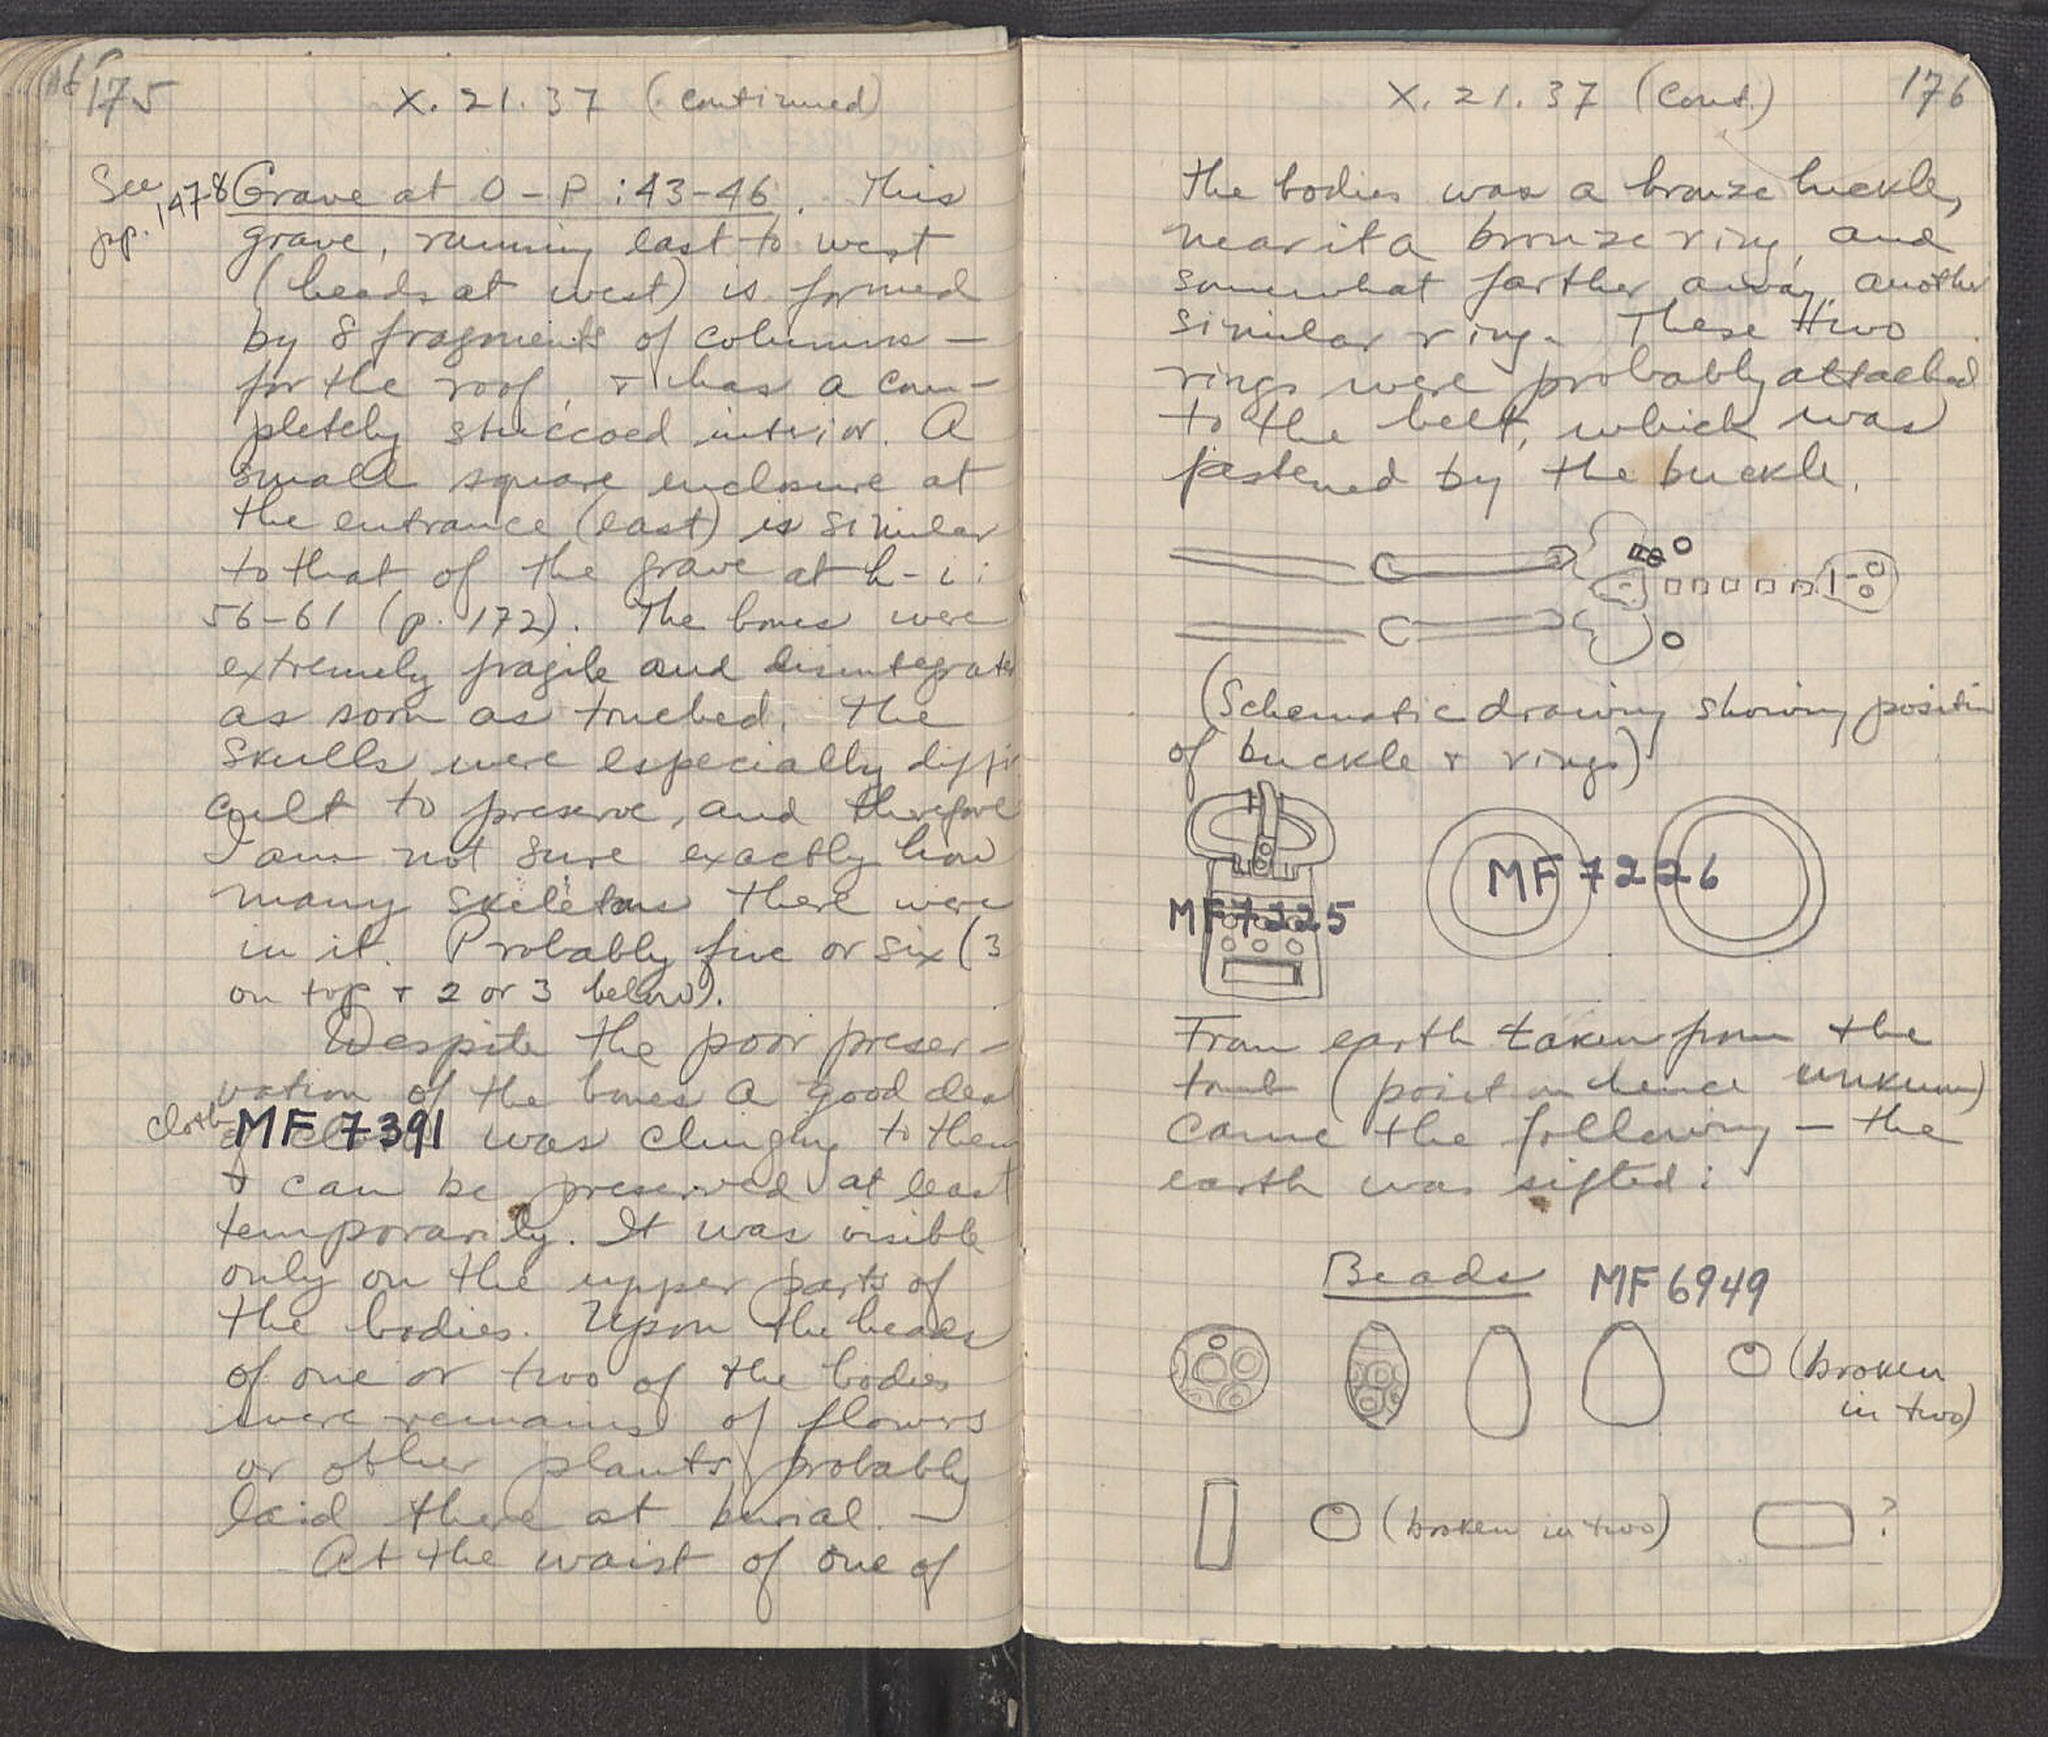 175
X. 21. 37 (continued)
See
pp. 147-8
Grave at O - P : 43-46. This
grave, running east to west
(heads at west) is formed
by 8 fragments of columns —
for the roof, + has a com-
pletely stuccoed interior. A
small square enclosure at
the entrance (east) is similar
to that of the grave at h - i :
56-61 (p. 172). The bones were
extremely fragile and disintegrated
as soon as touched. The
skulls were especially diffi-
cult to preserve, and therefore
I am not sure exactly how
many skeletons there were
in it. Probably five or six (3
on top + 2 or 3 below).
Despite the poor preser-
vation of the bones a good deal
cloth
of MF 7391 was clinging to them
+ can be preserved at least
temporarily. It was visible
only on the upper parts of
the bodies. Upon the heads
of one or two of the bodies
were remains of flowers
or other plants probably
laid there at burial. —
At the waist of one of
X. 21. 37 (cont.)
176
the bodies was a bronze buckle,
near it a bronze ring, and
somewhat farther away, another
similar ring. These two
rings were probably attached
to the belt, which was
fastened by the buckle.
(Schematic drawing showing position
of buckle + rings)
MF 7225
MF 7226
From earth taken from the
tomb (position hence unknown)
came the following — the
earth was sifted :
Beads MF 6949
(broken
in two)
(broken in two)
?